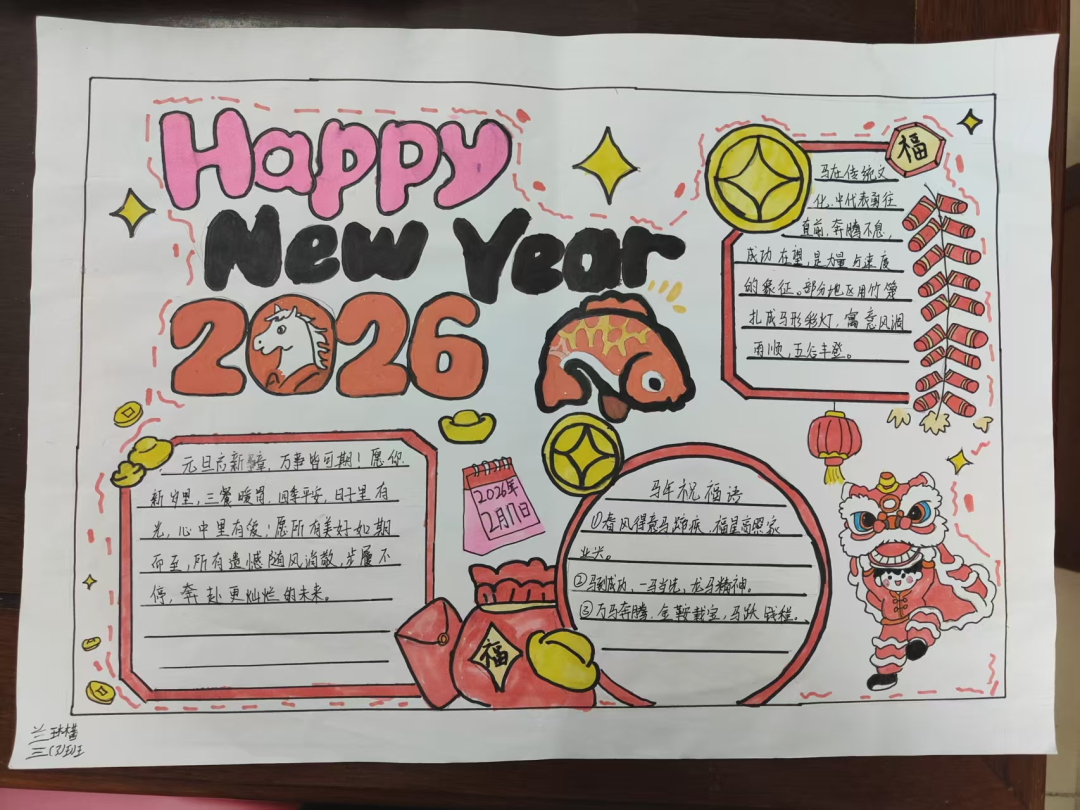 Happy
New Year
2026
福
马在传统文
化中代表勇往
直前、奔腾不息,
成功在望,是力量与速度
的象征。部分地区用竹篾
扎成马形彩灯,寓意风调
雨顺,五谷丰登。
元旦启新章,万事皆可期!愿你
新岁里,三餐暖胃,四季平安,日子里有
光,心中里有爱!愿所有美好如期
而至,所有遗憾随风消散,步履不
停,奔赴更灿烂的未来。
2026年
2月17日
福
马年祝福语
①春风得意马蹄疾,福星高照家
业兴。
②马到成功、一马当先、龙马精神。
③万马奔腾、金鞍载宝,马跃钱程。
三(3)班